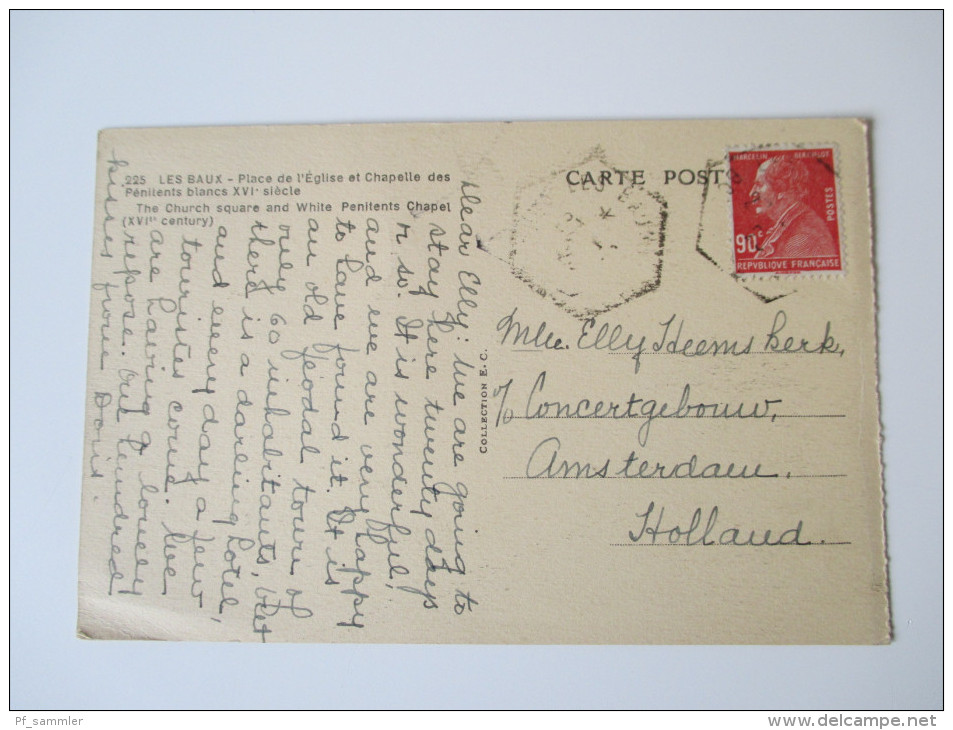 225 LES BAUX - Place de l'Église et Chapelle des
Pénitents blancs XVIe siècle
The Church square and White Penitents Chapel
(XVIth century)
CARTE POST
MARCELIN BERTHELOT
POSTES
90c
REPVBLIQUE FRANÇAISE
COLLECTION E.C.
Dear Elly: We are going to
stay here twenty days
or so. It is wonderful,
and we are very happy
to have found it. It is
an old feodal town of
only 60 inhabitants, but
there is a darling hotel,
and every day a few
touristes come. We
are having a lovely
repose. One hundred
kisses from Doris.
Mlle. Elly Heemskerk,
c/o Concertgebouw,
Amsterdam.
Holland.
Pf_sammler
http://www.delcampe.net